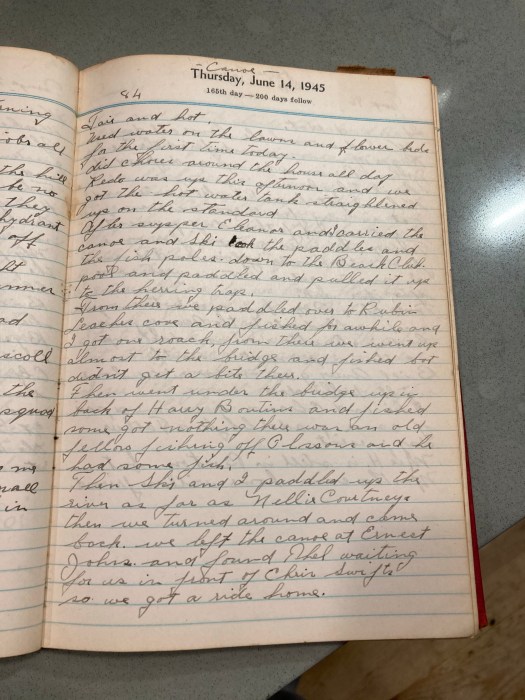 ening
jobs all
the hill
be no
they
hydrant
off
mmer
ad
scoll
the
squad
me
mall
in
- Canoe -
Thursday, June 14, 1945
165th day — 200 days follow
84
Fair and hot.
Used water on the lawn and flower beds
for the first time today.
did chores around the house all day
Redo was up this afternoon and we
got the hot water tank straightened
up on the standard
After supper Eleanor and I carried the
canoe and Ski took the paddles and
the fish poles down to the Beach Club.
pool and paddled and pulled it up
to the herring trap.
From there we paddled over to Rubin
Leaches cove and fished for awhile and
I got one roach, from there we went up
almost to the bridge and fished but
didn't get a bite there.
Then went under the bridge up in
back of Harry Boutins and fished
some got nothing there was an old
fellow fishing off Olssons and he
had some fish.
Then Ski and I paddled up the
river as far as Nellie Courtneys
then we turned around and came
back. we left the canoe at Ernest
Johns. and found Phil waiting
for us in front of Chris Swifts
so we got a ride home.